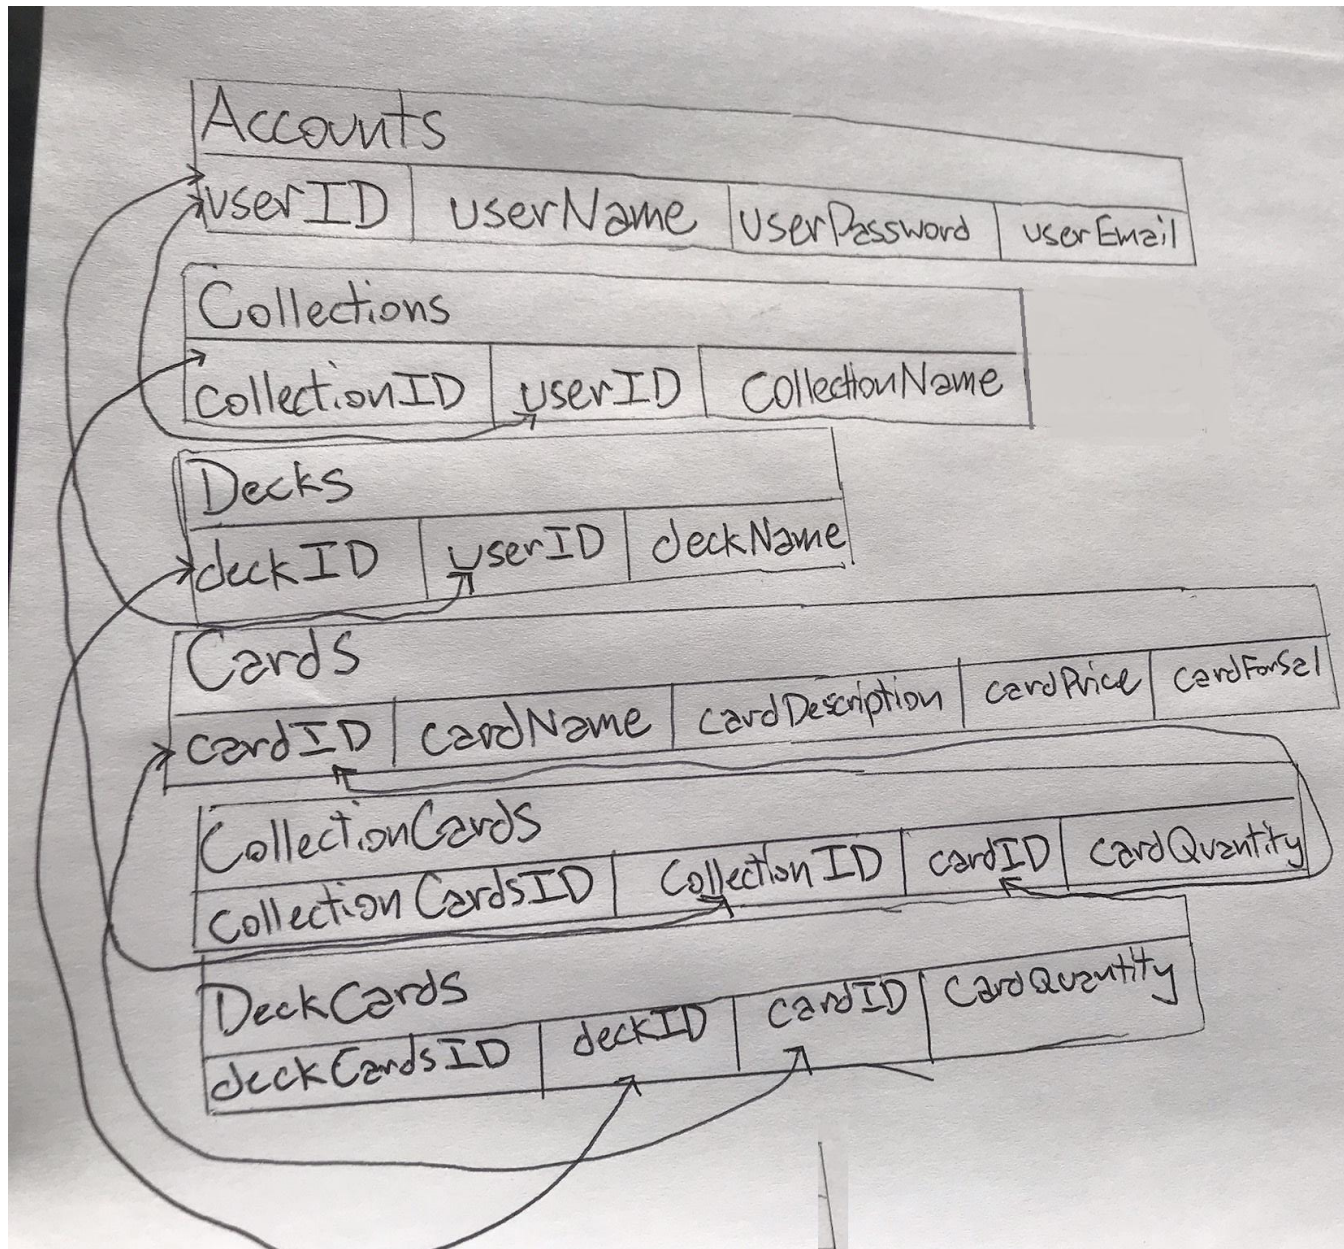 Accounts
userID userName userPassword userEmail
Collections
collectionID userID CollectionName
Decks
deckID userID deckName
Cards
cardID cardName cardDescription cardPrice cardForSal
CollectionCards
collectionCardsID CollectionID cardID cardQuantity
DeckCards
deckCardsID deckID cardID cardQuantity